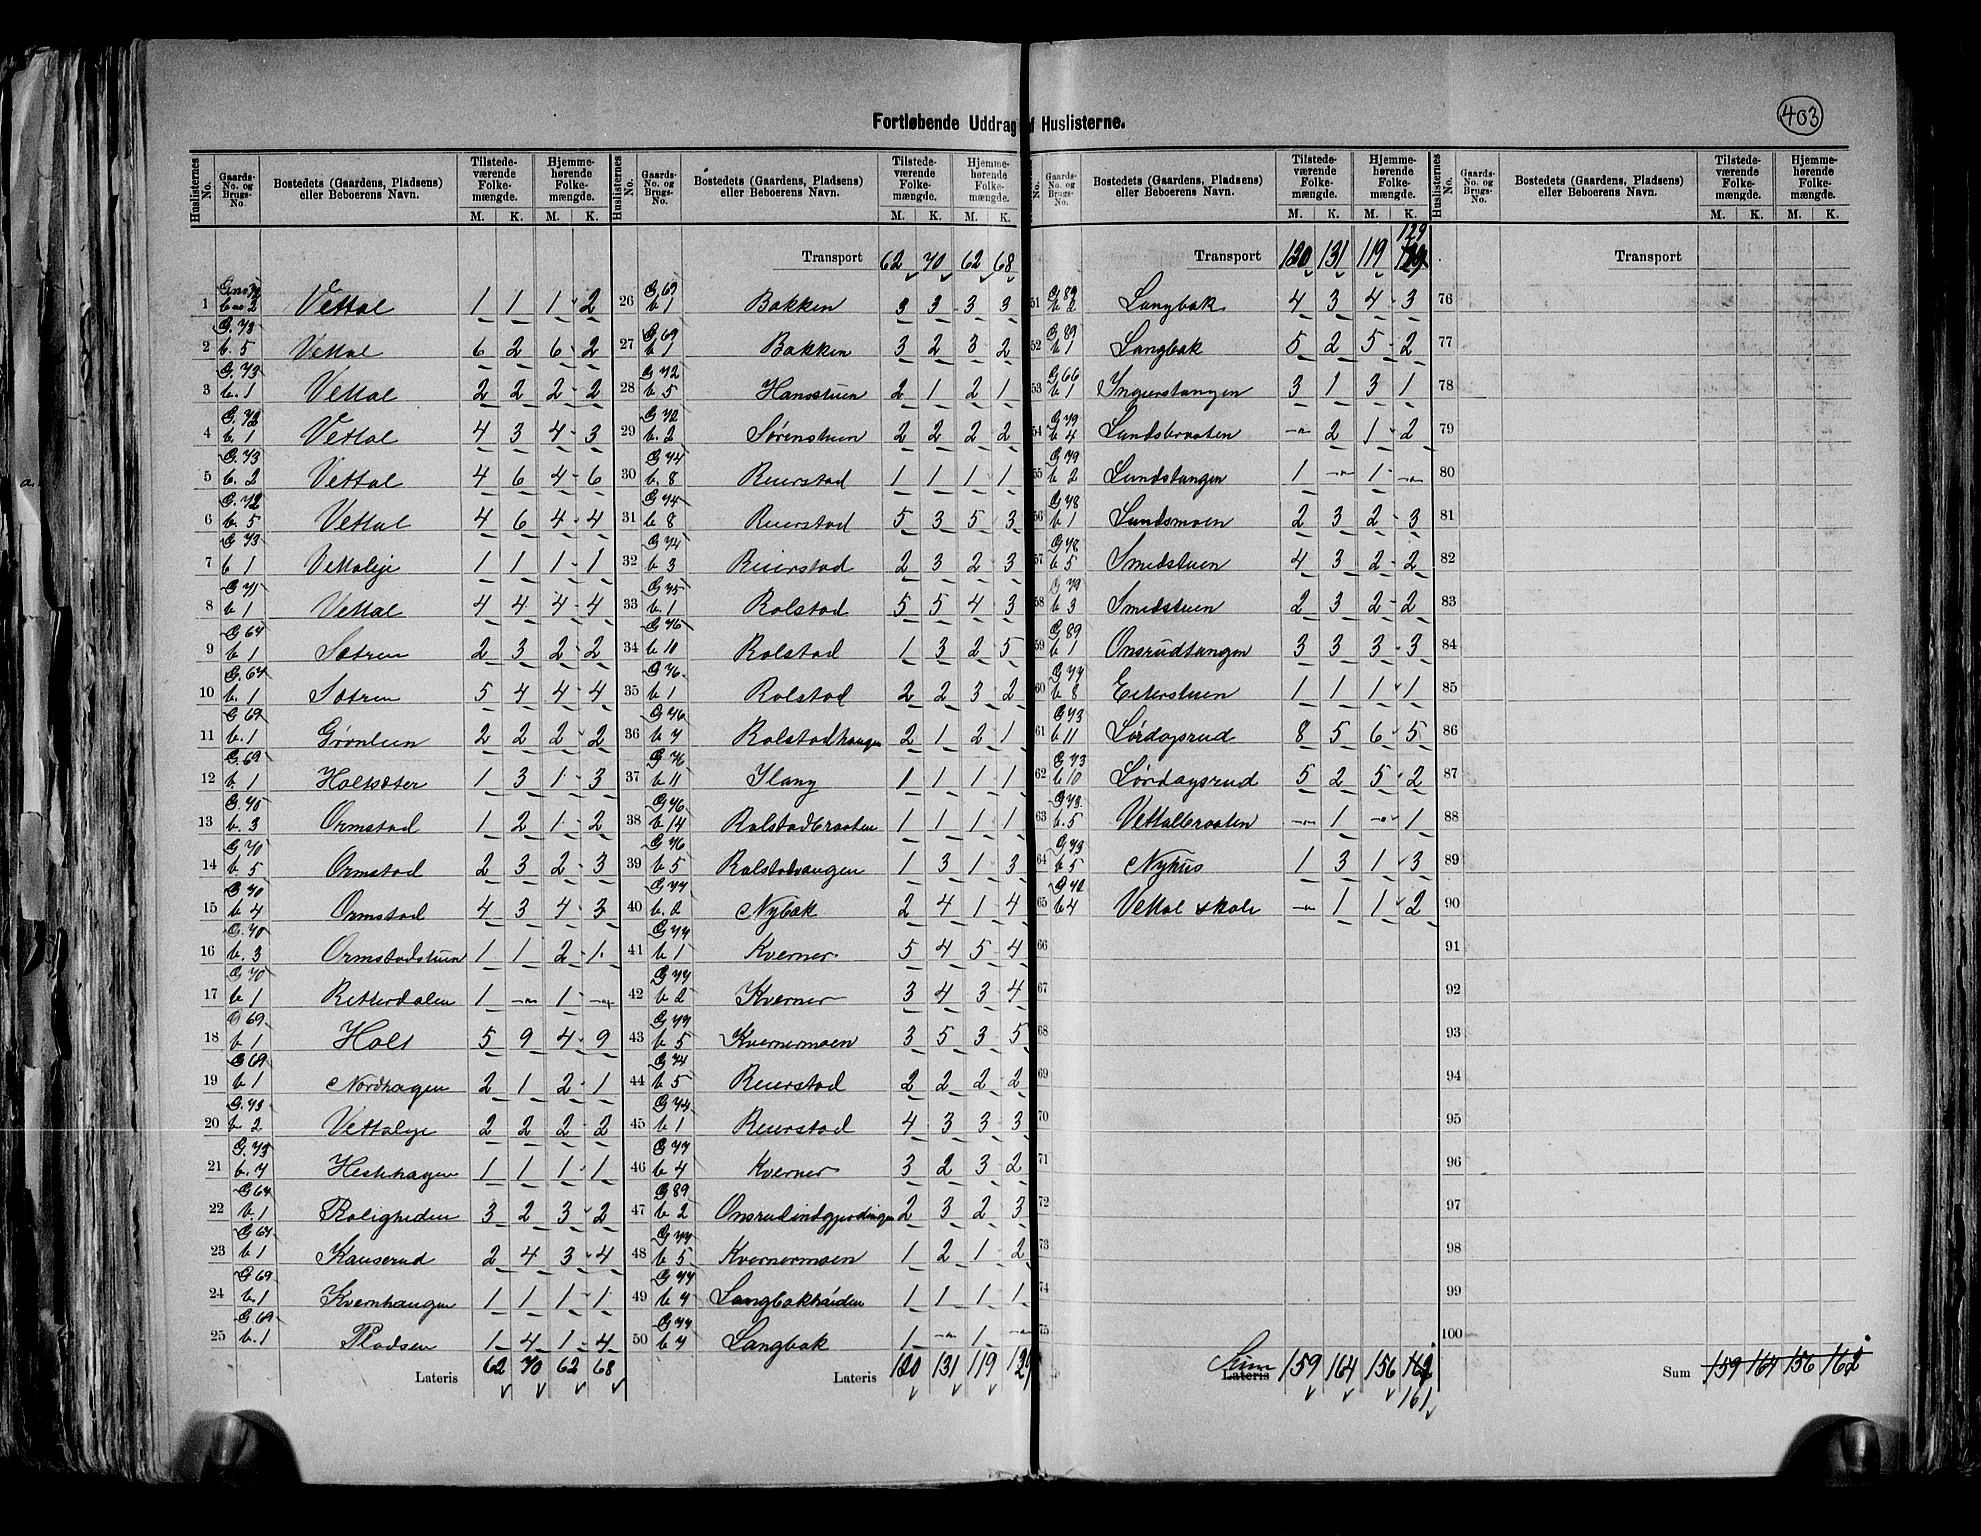 403
Fortløbende Uddrag af Huslisterne.
Huslisternes No. | Gaards-No. og Brugs-No. | Bostedets (Gaardens, Pladsens) eller Beboerens Navn. | Tilstedeværende Folkemængde. M. K. | Hjemmehørende Folkemængde. M. K.
1 G.no 72 b.no 2 Vettal 1 1 1 2
2 G. 73 b. 5 Vettal 6 2 6 2
3 G. 73 b. 1 Vettal 2 2 2 2
4 G. 72 b. 1 Vettal 4 3 4 3
5 G. 73 b. 2 Vettal 4 6 4 6
6 G. 72 b. 5 Vettal 4 6 4 4
7 G. 73 b 1 Vettaleje 1 1 1 1
8 G 71 b 1 Vettal 4 4 4 4
9 G 67 b 1 Sætren 2 3 2 2
10 G. 67 b. 1 Sætren 5 4 4 4
11 G 69 b. 1 Grønlien 2 2 2 2
12 G. 69 b. 1 Holtsæter 1 3 1 3
13 G. 70 b. 3 Ormstad 1 2 1 2
14 G. 70 b. 5 Ormstad 2 3 2 3
15 G. 70 b 4 Ormstad 4 3 4 3
16 G. 70 b. 3 Ormstadstuen 1 1 2 1
17 G 70 b 1 Retterdalen 1 -"- 1 -"-
18 G 69 b 1 Holt 5 9 4 9
19 G 69 b 1 Nordhagen 2 1 2 1
20 G. 73 b 2 Vettaleje 2 2 2 2
21 G. 73 b. 7 Hestehagen 1 1 1 1
22 G 67 b. 1 Roligheden 3 2 3 2
23 G 67 b 1 Kauserud 2 4 3 4
24 G 69 b. 1 Kvernhaugen 1 1 1 1
25 G. 69 b. 1 Pladsen 1 4 1 4
Lateris 62 70 62 68
Transport 62 70 62 68
26 G 69 b 1 Bakken 3 3 3 3
27 G 69 b 1 Bakken 3 2 3 2
28 G 72 b 5 Hansstuen 2 1 2 1
29 G 72 b. 2 Sørenstuen 2 2 2 2
30 G 74 b. 8 Reierstad 1 1 1 1
31 G 74 b 8 Reierstad 5 3 5 3
32 G 74 b 3 Reierstad 2 3 2 3
33 G 75 b. 1 Rolstad 5 5 4 3
34 G 76 b 10 Rolstad 1 3 2 5
35 G 76. b 1 Rolstad 2 2 3 2
36 G 76 b 7 Rolstadhaugen 2 1 2 1
37 G 76 b 11 Ilang 1 1 1 1
38 G 76 b 14 Rolstadbraaten 1 1 1 1
39 G 76 b 5 Rolstadvangen 1 3 1 3
40 G 77 b. 2 Nybæk 2 4 1 4
41 G 77 b 1 Kverner 5 4 5 4
42 G 77 b 2 Kverner 3 4 3 4
43 G 77 b 5 Kvernermoen 3 5 3 5
44 G 74 b 5 Reierstad 2 2 2 2
45 G 74 b 1 Reierstad 4 3 3 3
46 G 77 b 4 Kverner 3 2 3 2
47 G 89 b 2 Onsrudindgjerdingen 2 3 2 3
48 G 77 b 5 Kvernermoen 1 2 1 2
49 G 77 b 7 Langbakhaiden 1 1 1 1
50 G 77 b 7 Langbak 1 -"- 1 -"-
Lateris 120 131 119 129
Transport 120 131 119 129
51 G 89 b 2 Langbak 4 3 4 3
52 G 89 b 1 Langbak 5 2 5 2
53 G 66 b 1 Ingierstangen 3 1 3 1
54 G 79 b 4 Lundsbraaten -"- 2 1 2
55 G 79 b 2 Lundstangen 1 -"- 1 -"-
56 G 78 b 1 Lundsmoen 2 3 2 3
57 G 78 b 5 Smedstuen 4 3 2 2
58 G 79 b 3 Smedstuen 2 3 2 2
59 G 89 b 1 Onsrudtangen 3 3 3 3
60 G 77 b 8 Eiterstuen 1 1 1 1
61 G 73 b 11 Lørdagsrud 8 5 6 5
62 G 73 b 10 Lørdagsrud 5 2 5 2
63 G 73. b. 5 Vettalbraaten -"- 1 -"- 1
64 G 73 b 5 Nyhus 1 3 1 3
65 G 72 b 4 Vettal skole -"- 1 1 2
66
67
68
69
70
71
72
73
74
75
Lateris Sum 159 164 156 162 161
Transport
76
77
78
79
80
81
82
83
84
85
86
87
88
89
90
91
92
93
94
95
96
97
98
99
100
Sum 159 164 156 162